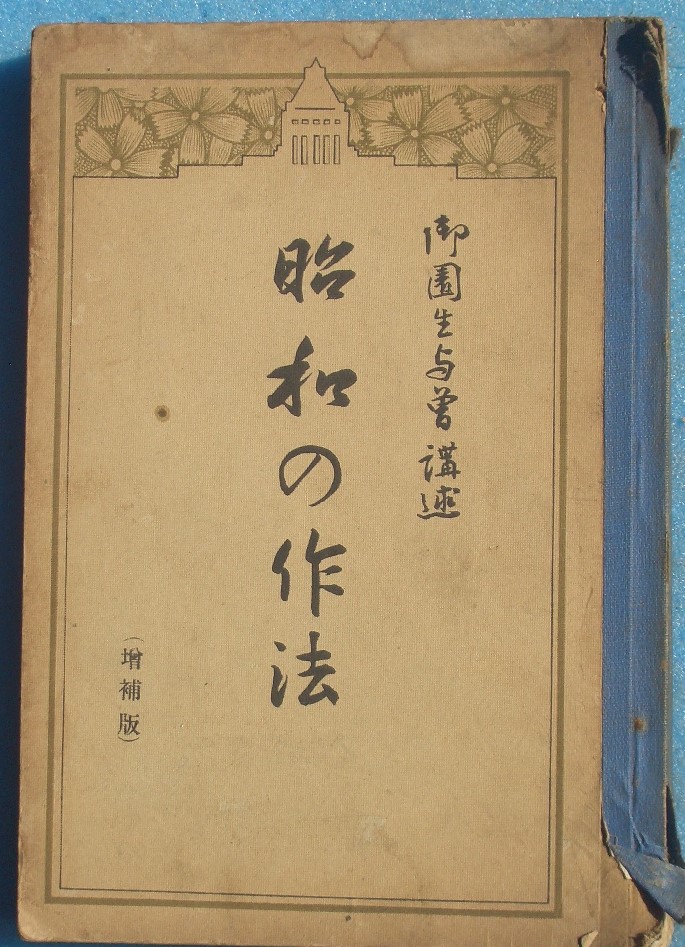 御園生与曽講述
昭和の作法
(増補版)